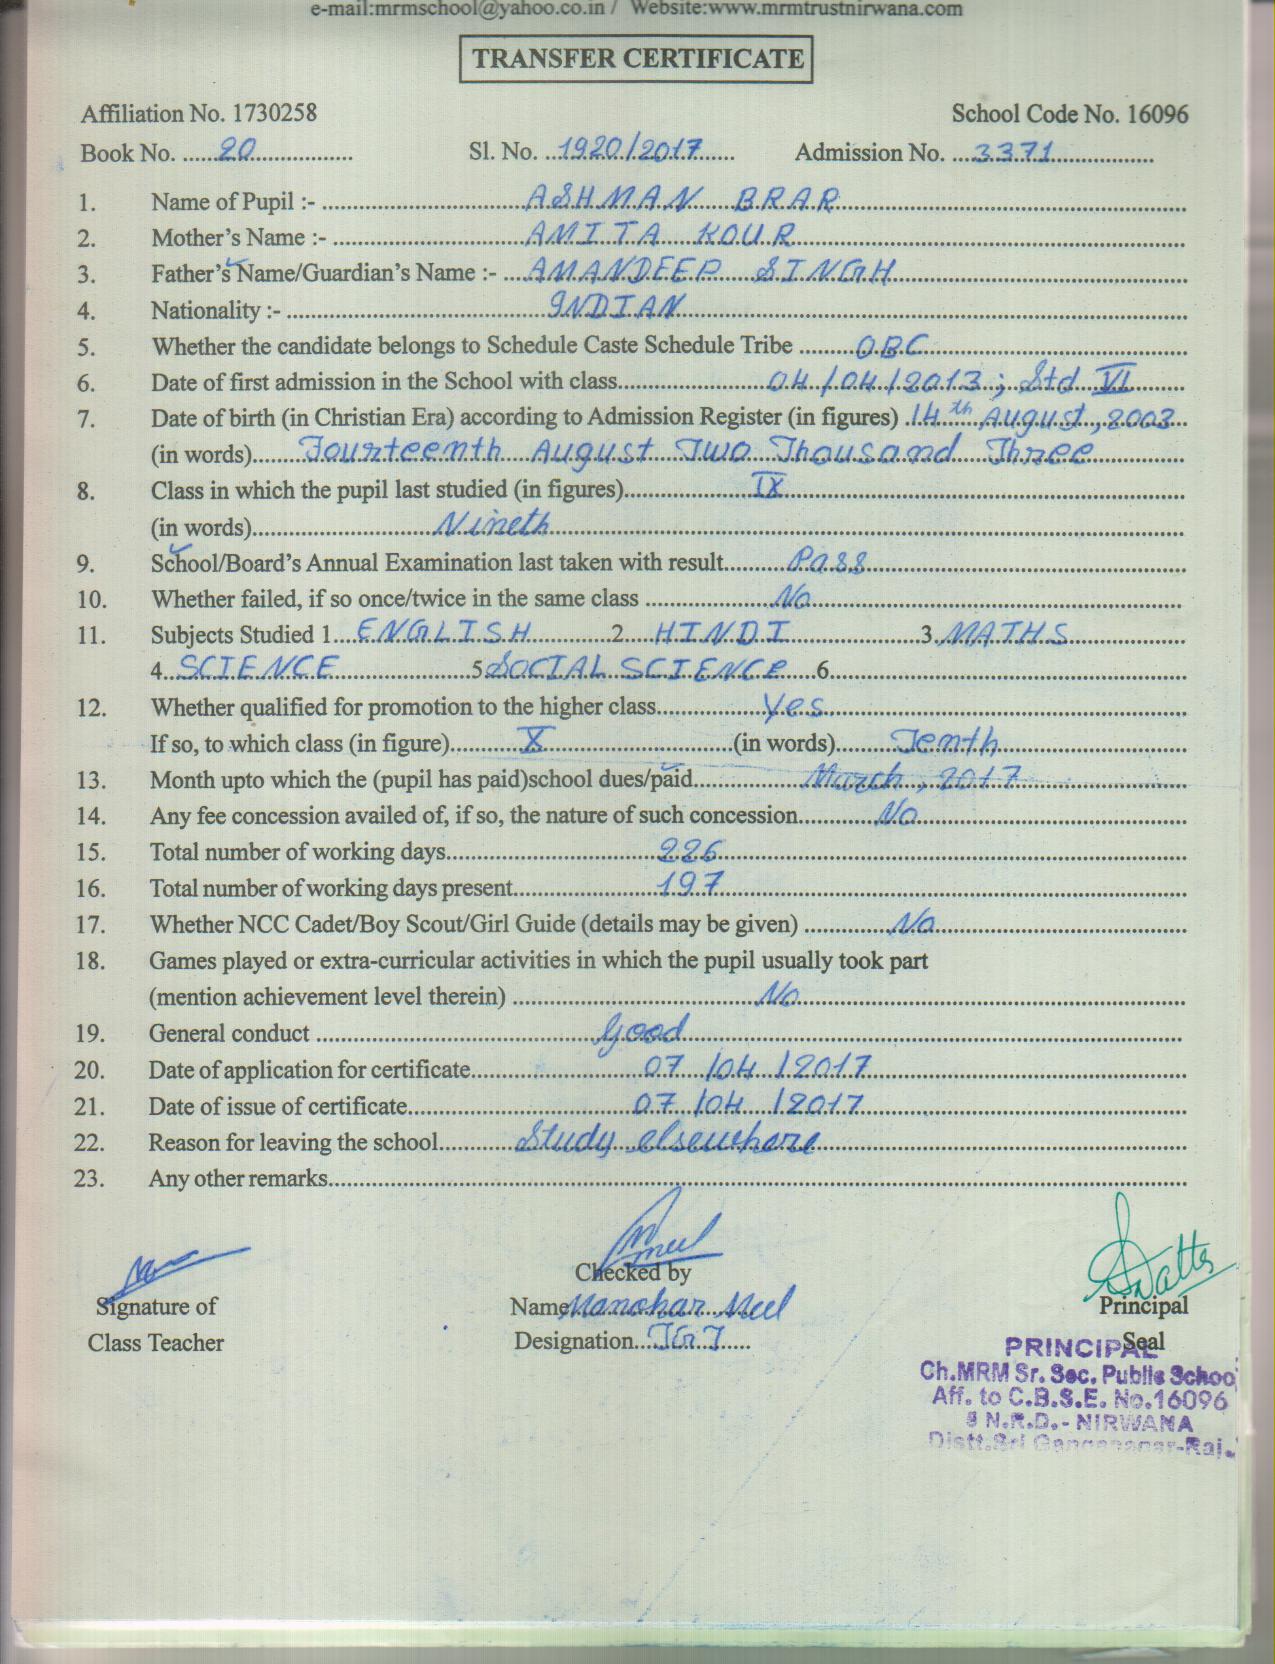 e-mail:mrmschool@yahoo.co.in / Website:www.mrmtrustnirwana.com
TRANSFER CERTIFICATE
Affiliation No. 1730258 School Code No. 16096
Book No. 20 Sl. No. 1920/2017 Admission No. 3371
1. Name of Pupil :- ASHMAN BRAR
2. Mother's Name :- AMITA KOUR
3. Father's Name/Guardian's Name :- AMANDEEP SINGH
4. Nationality :- INDIAN
5. Whether the candidate belongs to Schedule Caste Schedule Tribe OBC
6. Date of first admission in the School with class 04/04/2013; Std VI
7. Date of birth (in Christian Era) according to Admission Register (in figures) 14th August, 2003
(in words) Fourteenth August Two Thousand Three
8. Class in which the pupil last studied (in figures) IX
(in words) Nineth
9. School/Board's Annual Examination last taken with result Pass
10. Whether failed, if so once/twice in the same class No
11. Subjects Studied 1. ENGLISH 2. HINDI 3. MATHS
4. SCIENCE 5 SOCIAL SCIENCE 6.
12. Whether qualified for promotion to the higher class Yes
If so, to which class (in figure) X (in words) Tenth
13. Month upto which the (pupil has paid)school dues/paid March, 2017
14. Any fee concession availed of, if so, the nature of such concession No
15. Total number of working days 226
16. Total number of working days present 197
17. Whether NCC Cadet/Boy Scout/Girl Guide (details may be given) No
18. Games played or extra-curricular activities in which the pupil usually took part
(mention achievement level therein) No
19. General conduct Good
20. Date of application for certificate 07/04/2017
21. Date of issue of certificate 07/04/2017
22. Reason for leaving the school Study elsewhere
23. Any other remarks
Checked by
Signature of Name Manohar Meel Principal
Class Teacher Designation TGT Seal
PRINCIPAL
Ch.MRM Sr. Sec. Public Schoo
Aff. to C.B.S.E. No.16096
N.R.D.- NIRWANA
Distt.Sri Ganganagar-Raj.